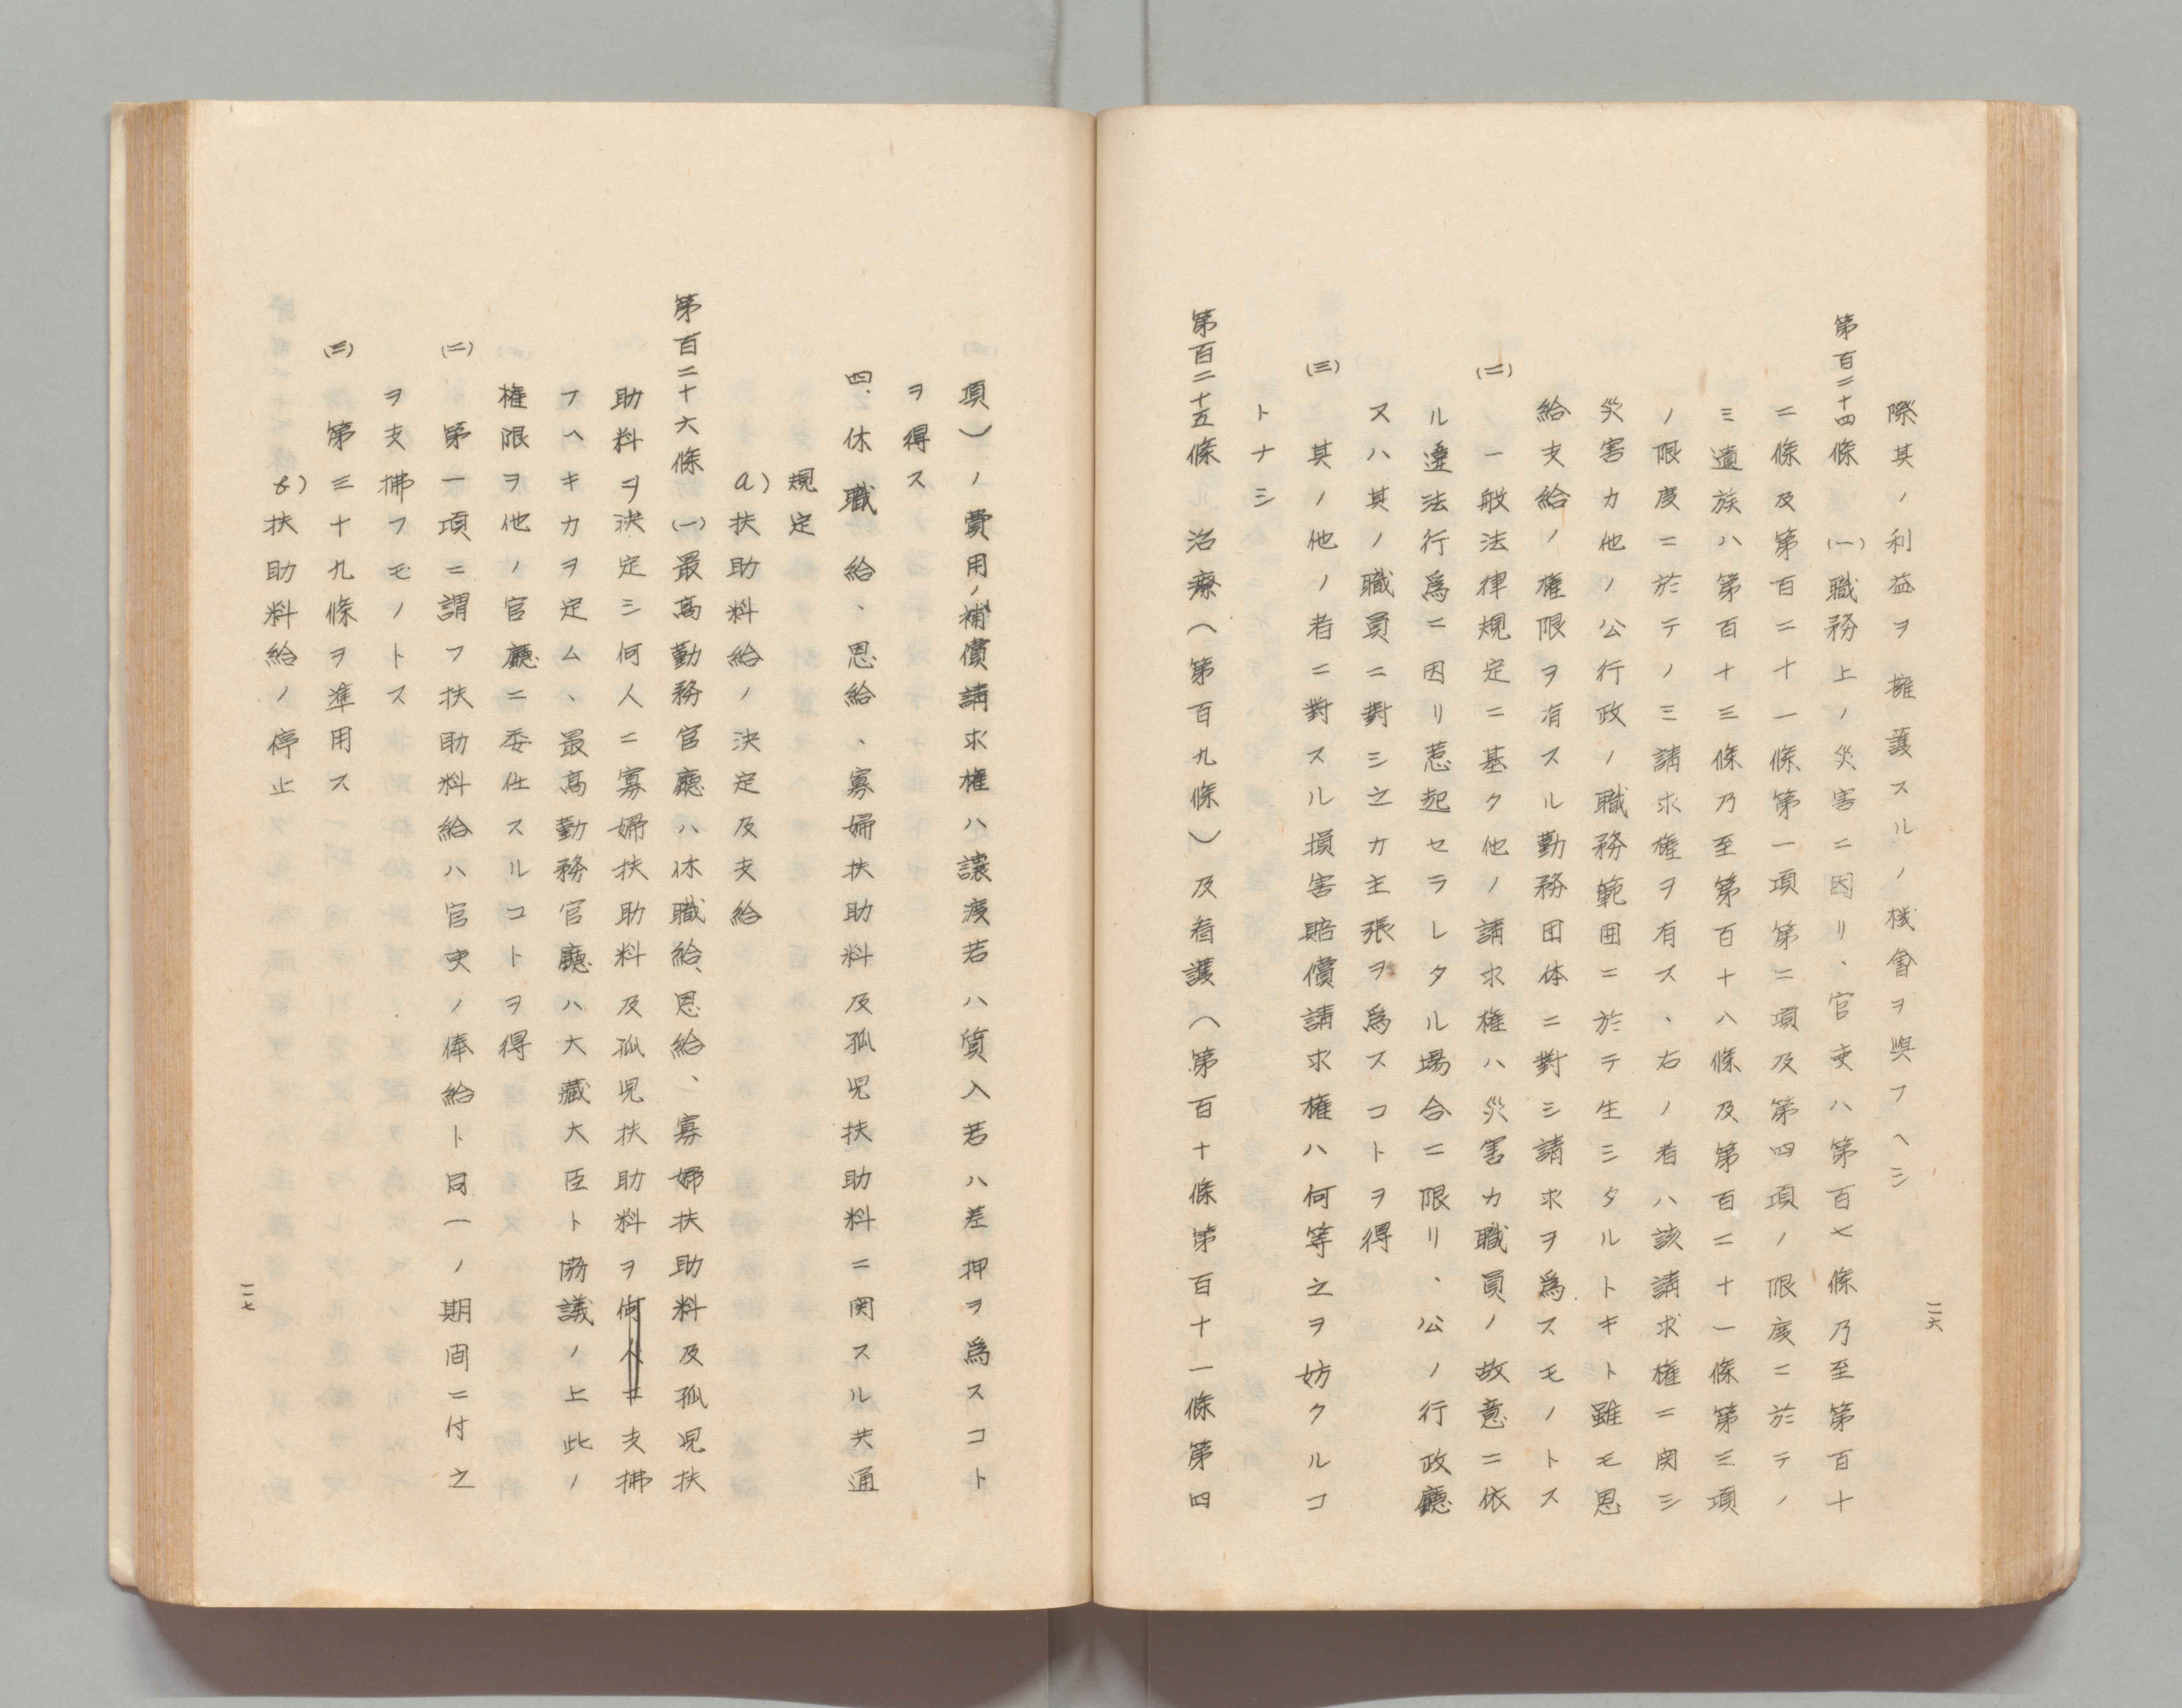 際其ノ利益ヲ擁護スルノ機會ヲ與フヘシ
第百二十四條 (一)職務上ノ災害ニ因リ、官吏ハ第百七條乃至第百十
二條及第百二十一條第一項第二項及第四項ノ限度ニ於テノ
ミ遺族ハ第百十三條乃至第百十八條及第百二十一條第三項
ノ限度ニ於テノミ請求權ヲ有ス、右ノ者ハ該請求權ニ関シ
災害カ他ノ公行政ノ職務範囲ニ於テ生ミタルトキト雖モ恩
給支給ノ權限ヲ有スル勤務団体ニ對シ請求ヲ爲スモノトス
(二) 一般法律規定ニ基ク他ノ請求權ハ災害カ職員ノ故意ニ依
ル違法行爲ニ因リ惹起セラレタル場合ニ限リ、公ノ行政廳
又ハ其ノ職員ニ對シ之カ主張ヲ爲スコトヲ得
(三) 其ノ他ノ者ニ對スル損害賠償請求權ハ何等之ヲ妨クルコ
トナシ
第百二十五條 治療(第百九條)及看護(第百十條第百十一條第四
二六
項)ノ費用ノ補償請求權ハ讓渡若ハ質入若ハ差押ヲ爲スコト
ヲ得ス
四.休職給、恩給、寡婦扶助料及孤児扶助料ニ関スル共通
規定
a)扶助料給ノ決定及支給
第百二十六條 (一)最高勤務官廳ハ休職給、恩給、寡婦扶助料及孤児扶
助料ヲ決定シ何人ニ寡婦扶助料及孤児扶助料ヲ支拂
フヘキカヲ定ム、最高勤務官廳ハ大藏大臣ト協議ノ上此ノ
權限ヲ他ノ官廳ニ委任スルコトヲ得
(二) 第一項ニ謂フ扶助料給ハ官吏ノ俸給ト同一ノ期間ニ付之
ヲ支拂フモノトス
(三) 第三十九條ヲ準用ス
b)扶助料給ノ停止
二七